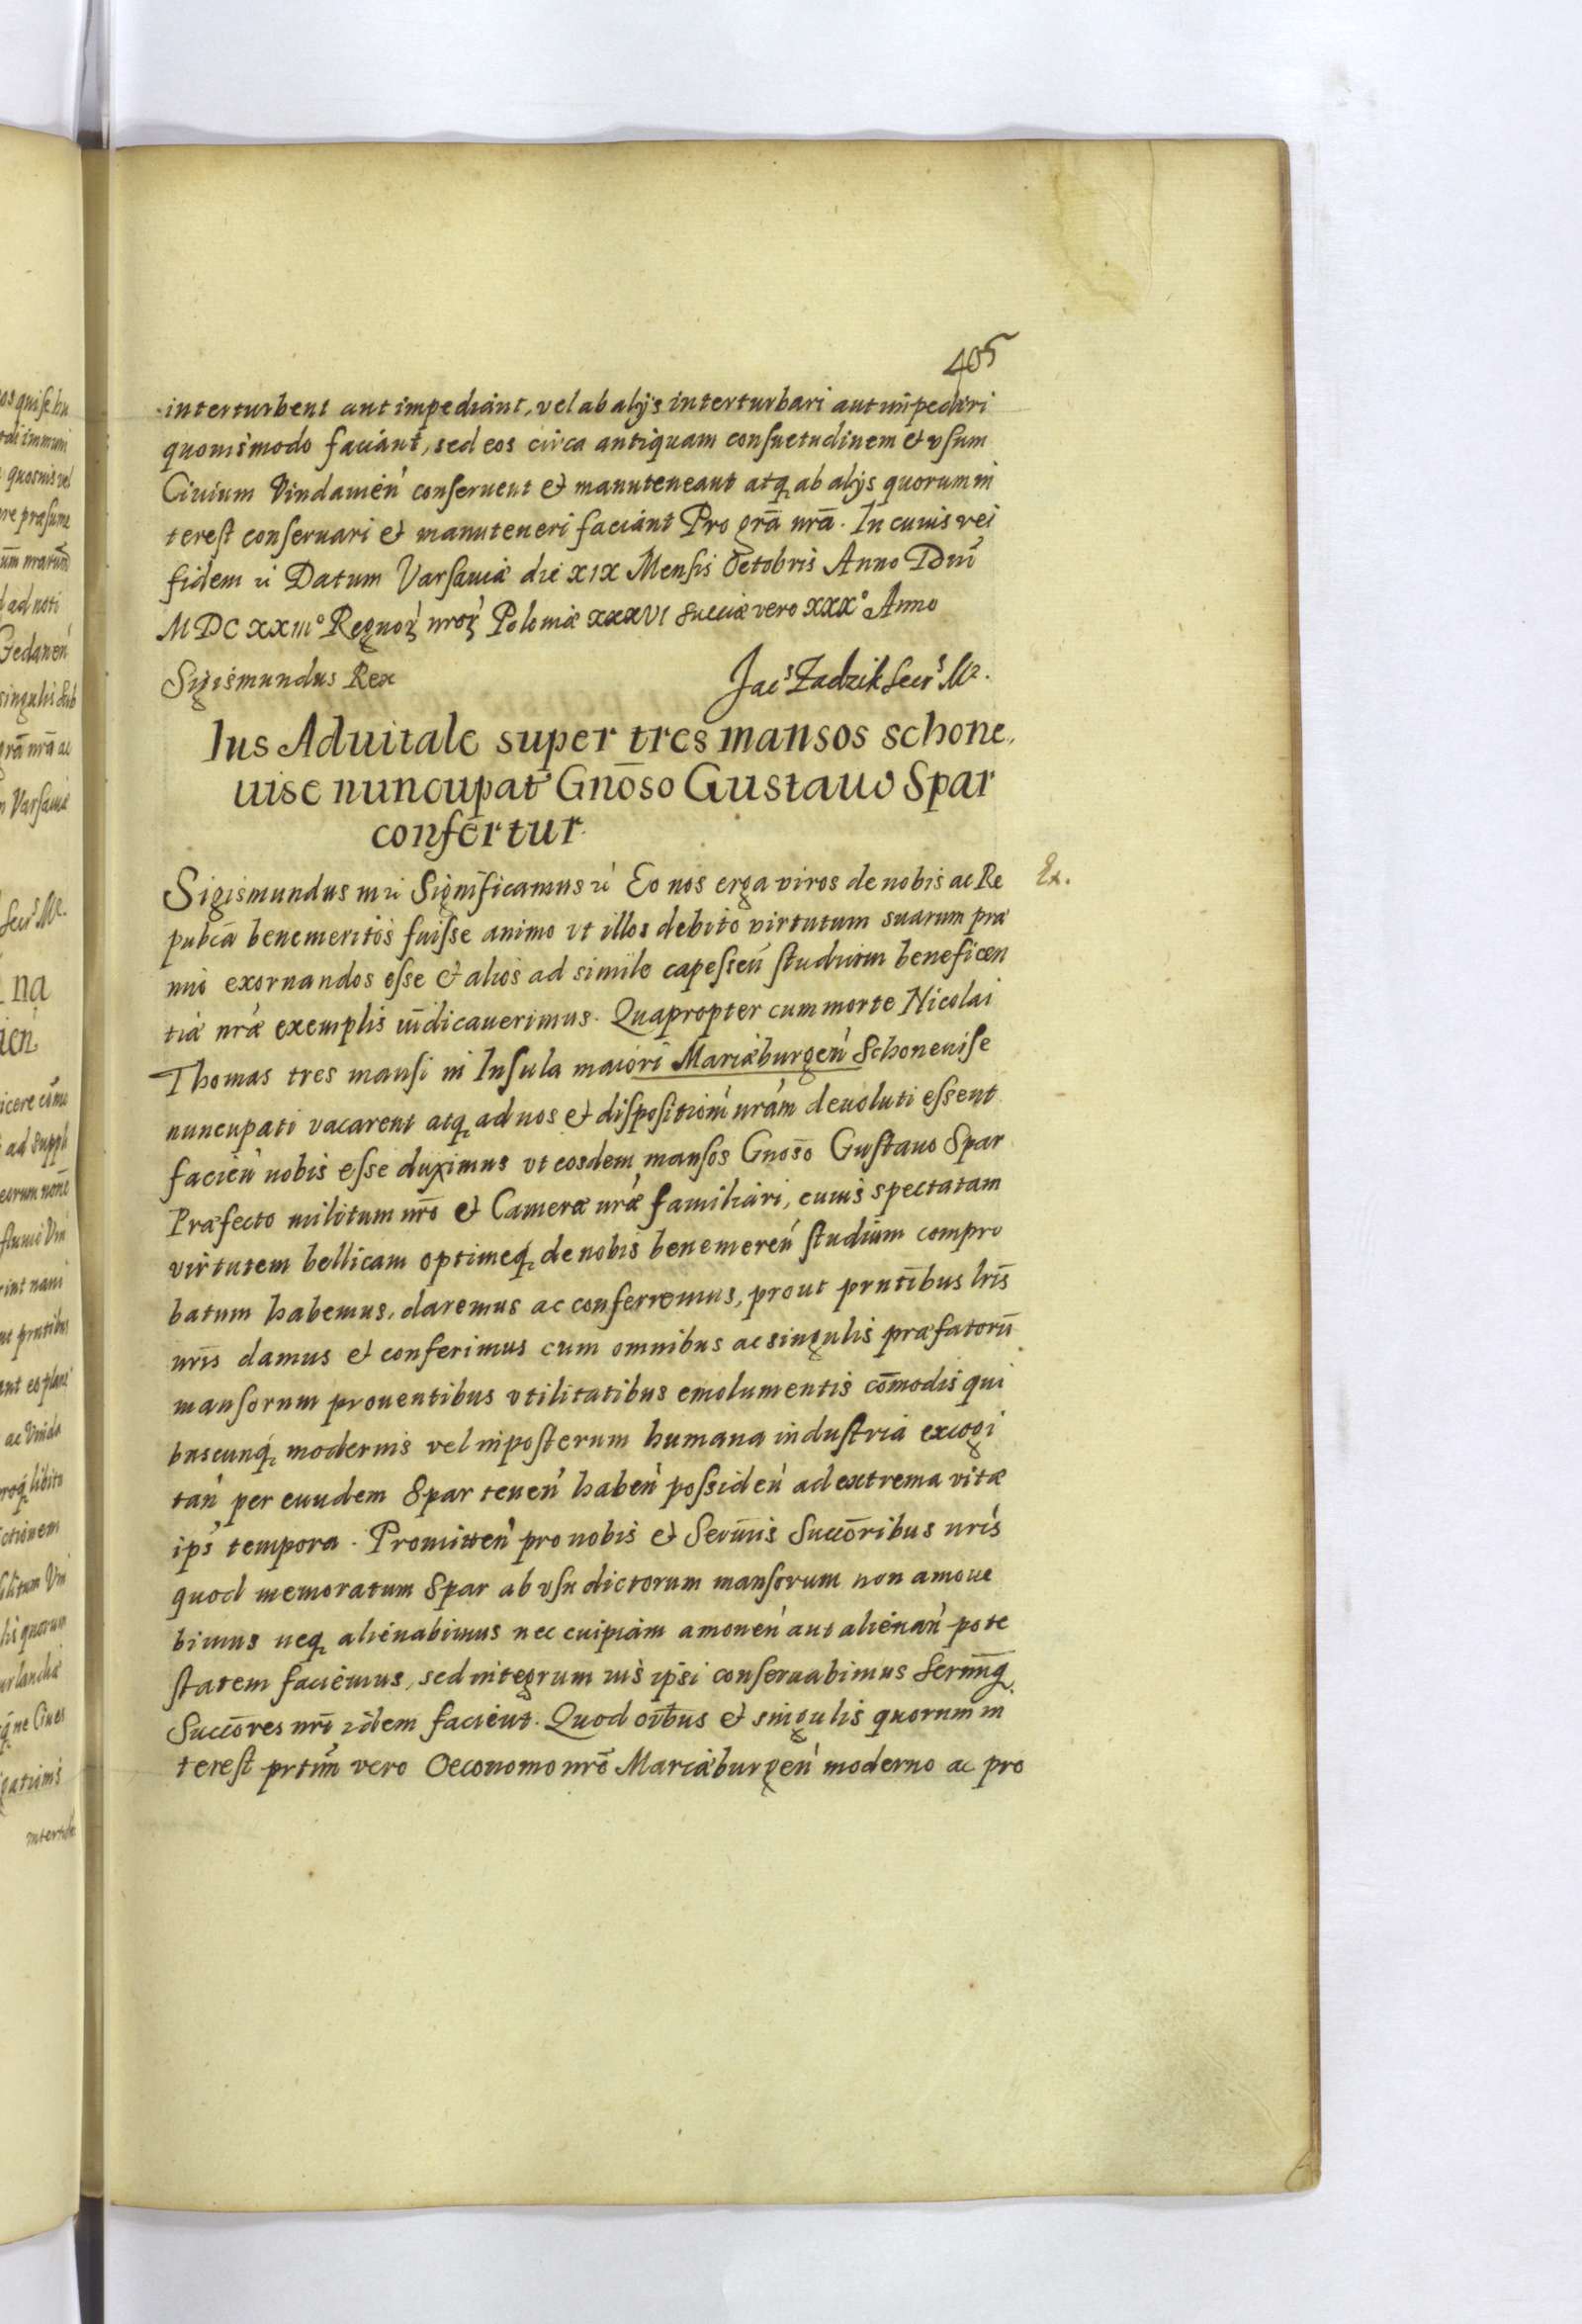 405
interturbent aut impediant, vel ab alijs interturbari aut impediri
quouismodo faciant, sed eos circa antiquam consuetudinem et vsum
Ciuium Vindauień conseruent et manuteneant atq ab alijs quorum in
terest conseruari et manuteneri faciant Pro grā nrā. In cuius rei
fidem Datum Varsauiæ die XIX Mensis Octobris Anno Dnī
MDCXXIIIº Regnoȝ nroȝ Poloniæ XXXVI Sueciæ vero XXXº Anno
Sigismundus Rex
Jacˢ Zadzik Secrˢ Mr.
Ius Aduitale super tres mansos schone,
uise nuncupat Gnōso Gustauo Spar
confertur.
Sigismundus Significamus Eo nos erga viros de nobis ac Re
Ex.
pubcā benemeritos fuisse animo vt illos debito virtutum suarum præ
mio exornandos esse et alios ad simile capesseń studium beneficen
tiæ nræ exemplis iudicauerimus. Quapropter cum morte Nicolai
Thomas tres mansi in Insula maiori Mariæburgeń Schoneuise
nuncupati vacarent atq ad nos et dispositioḿ nrám deuoluti essent
facień nobis esse duximus vt eosdem mansos Gnoso Gustauo Spar
Præfecto militum nrō et Cameræ nræ familiari, cuius spectatam
virtutem bellicam optimeq de nobis benemereń studium compro
batum habemus, daremus ac conferremus, prout prntibus lris
nris damus et conferimus cum omnibus ac singulis præfatorū
mansorum prouentibus vtilitatibus emolumentis cōmodis qui
buscunq modernis vel inposterum humana industria excogi
tań per eundem Spar teneń habeń possideń ad extrema vitæ
ips tempora. Promitteń pro nobis et Sermis Succōribus nris
quod memoratum Spar ab vsu dictorum mansorum non amoue
bimus neq alienabimus nec cuipiam amoueń aut alienań pote
statem faciemus, sed integrum ius ipsi conseruabimus Sermiq
Succōres nri idem facient. Quod oibus et singulis quorum in
terest prtim vero Oeconomo nrō Mariæburgeń moderno ac pro